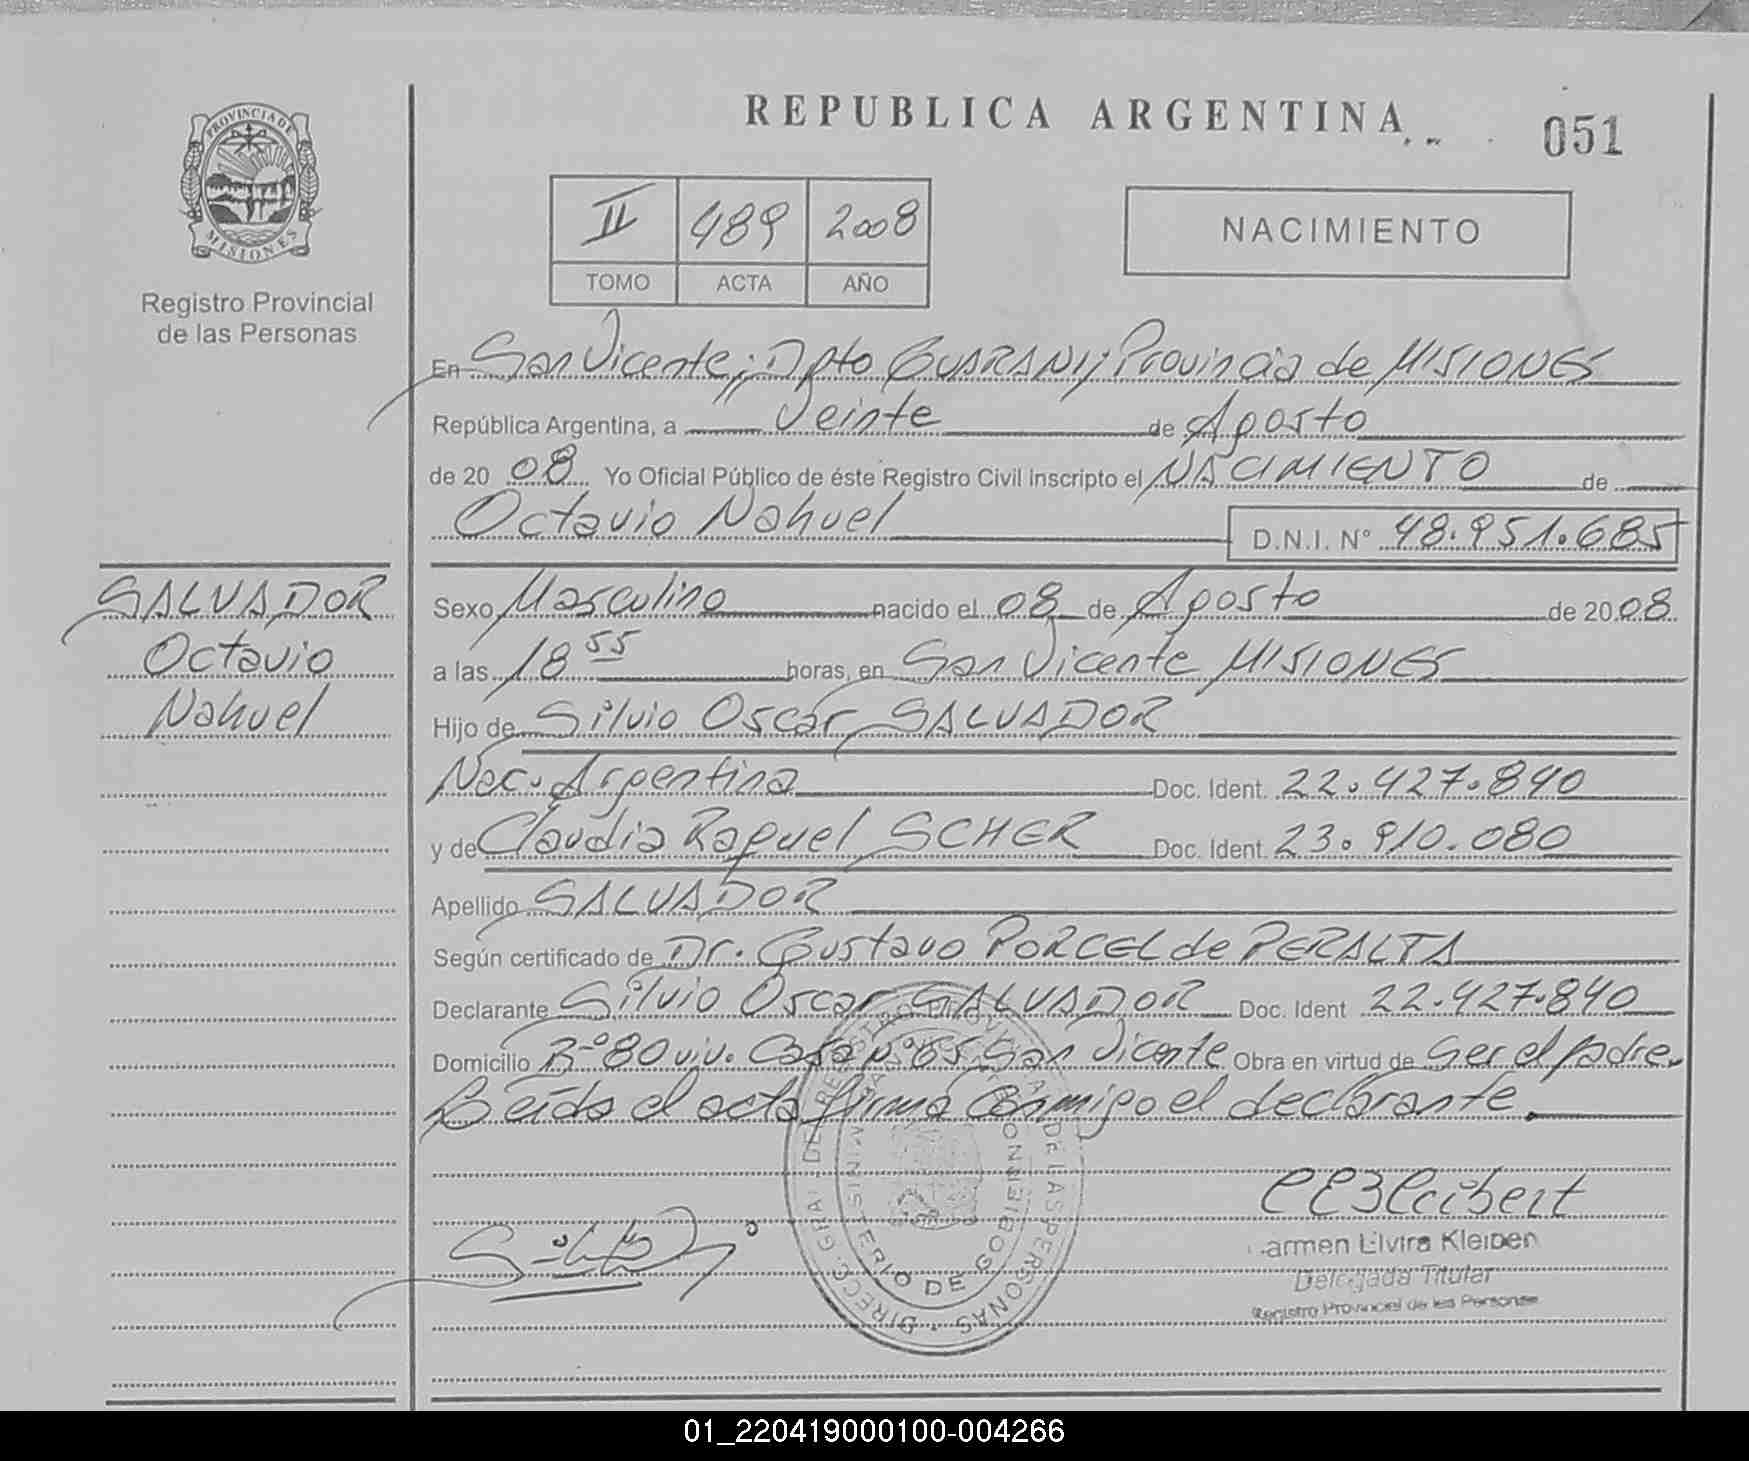 REPUBLICA ARGENTINA
051
PROVINCIA DE
MISIONES
Registro Provincial
de las Personas
II 489 2008
TOMO ACTA AÑO
NACIMIENTO
En San Vicente; Dpto GUARANI; Provincia de MISIONES
República Argentina, a Veinte de Agosto
de 2008 Yo Oficial Público de éste Registro Civil Inscripto el NACIMIENTO de
Octavio Nahuel D.N.I. N° 48.951.685
SALVADOR
Octavio
Nahuel
Sexo Masculino nacido el 08 de Agosto de 2008
a las 18 55 horas, en San Vicente MISIONES
Hijo de Silvio Oscar SALVADOR
Nac. Argentina Doc. Ident. 22.427.840
y de Claudia Raquel SCHER Doc. Ident. 23.910.080
Apellido SALVADOR
Según certificado de Dr. Gustavo PORCEL de PERALTA
Declarante Silvio Oscar SALVADOR Doc. Ident 22.427.840
Domicilio B° 80 viv. Casa N° 65 San Vicente Obra en virtud de Ser el padre.
Leída el acta firma Conmigo el declarante.
DIRECC. GRAL. DE REGISTRO PROVINCIAL DE LAS PERSONAS
MINISTERIO DE GOBIERNO
Delegada Titular
Registro Provincial de las Personas
01_220419000100-004266